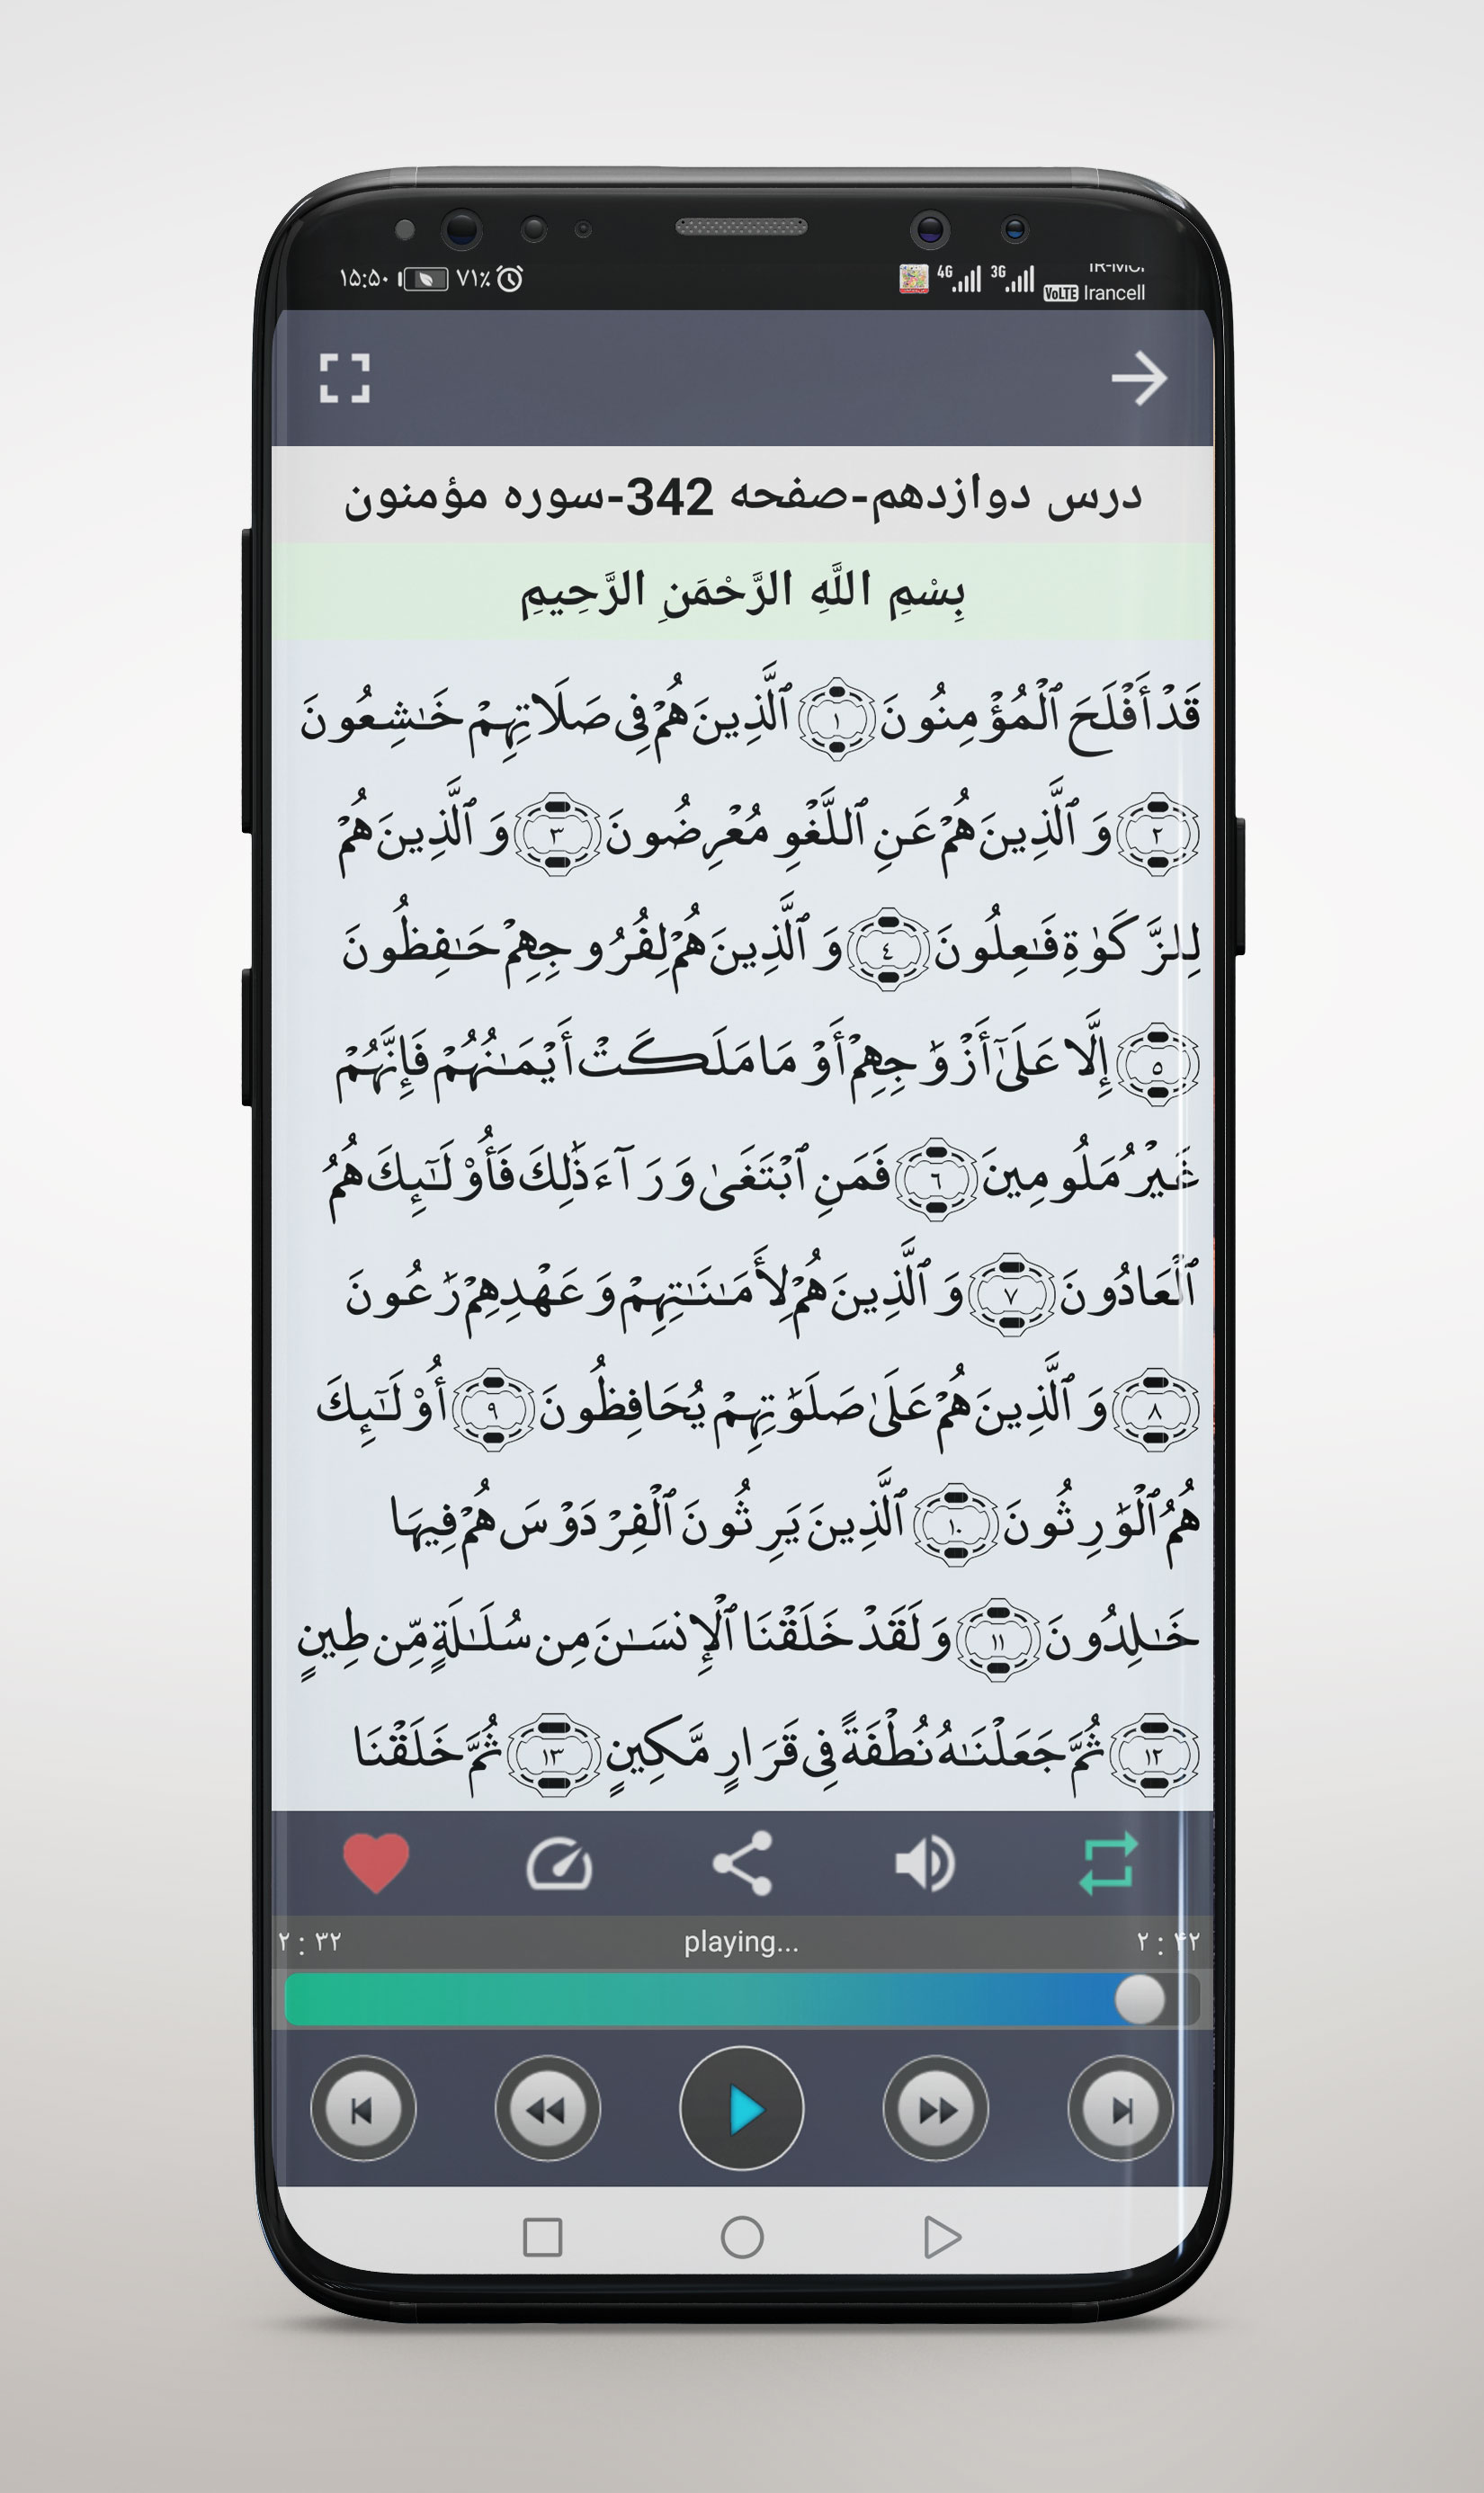 ۱۵:۵۰ ۷۱٪ 4G 3G
VoLTE Irancell
درس دوازدهم-صفحه 342-سوره مؤمنون
بِسْمِ اللَّهِ الرَّحْمَنِ الرَّحِيمِ
قَدْ أَفْلَحَ ٱلْمُؤْمِنُونَ ١ ٱلَّذِينَ هُمْ فِى صَلَاتِهِمْ خَـٰشِعُونَ
٢ وَٱلَّذِينَ هُمْ عَنِ ٱللَّغْوِ مُعْرِضُونَ ٣ وَٱلَّذِينَ هُمْ
لِلزَّكَوٰةِ فَـٰعِلُونَ ٤ وَٱلَّذِينَ هُمْ لِفُرُوجِهِمْ حَـٰفِظُونَ
٥ إِلَّا عَلَىٰٓ أَزْوَٰجِهِمْ أَوْ مَا مَلَكَتْ أَيْمَـٰنُهُمْ فَإِنَّهُمْ
غَيْرُ مَلُومِينَ ٦ فَمَنِ ٱبْتَغَىٰ وَرَآءَ ذَٰلِكَ فَأُو۟لَـٰٓئِكَ هُمُ
ٱلْعَادُونَ ٧ وَٱلَّذِينَ هُمْ لِأَمَـٰنَـٰتِهِمْ وَعَهْدِهِمْ رَٰعُونَ
٨ وَٱلَّذِينَ هُمْ عَلَىٰ صَلَوَٰتِهِمْ يُحَافِظُونَ ٩ أُو۟لَـٰٓئِكَ
هُمُ ٱلْوَٰرِثُونَ ١٠ ٱلَّذِينَ يَرِثُونَ ٱلْفِرْدَوْسَ هُمْ فِيهَا
خَـٰلِدُونَ ١١ وَلَقَدْ خَلَقْنَا ٱلْإِنسَـٰنَ مِن سُلَـٰلَةٍ مِّن طِينٍ
١٢ ثُمَّ جَعَلْنَـٰهُ نُطْفَةً فِى قَرَارٍ مَّكِينٍ ١٣ ثُمَّ خَلَقْنَا
۲ : ۳۲ playing... ۲ : ۴۲